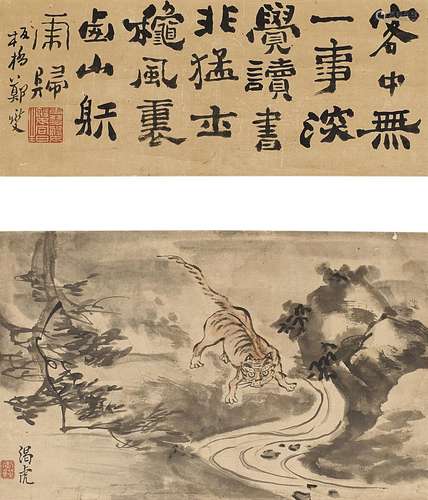 客中無
一事深
覺讀書
非猛士
龝風裏
南山射
虎歸
板橋鄭燮
渴虎